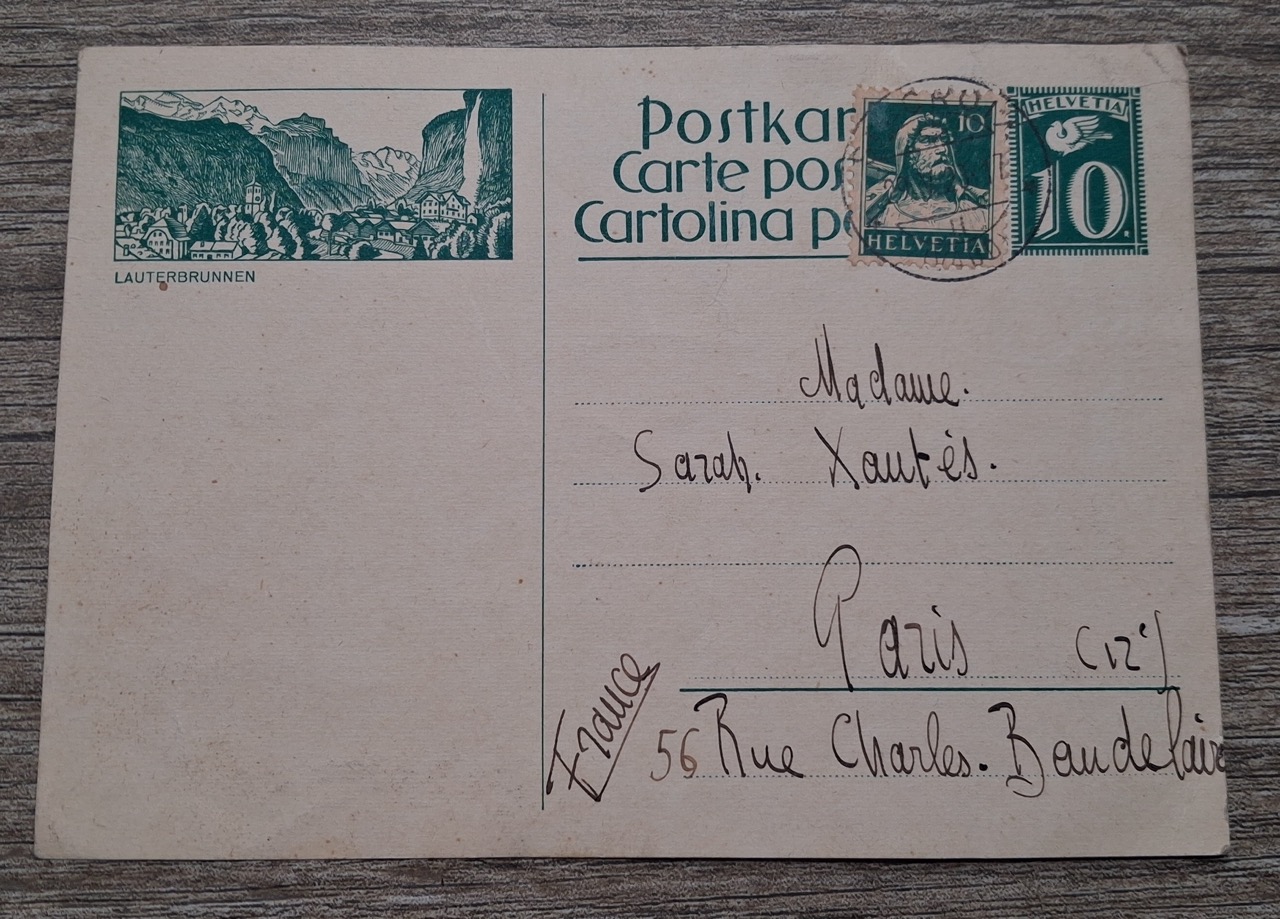 LAUTERBRUNNEN
Postkar
Carte pos
Cartolina po
10
HELVETIA
HELVETIA
10.
Madame.
Sarah. Xantès.
Paris (12e)
France
56 Rue Charles. Baudelaire